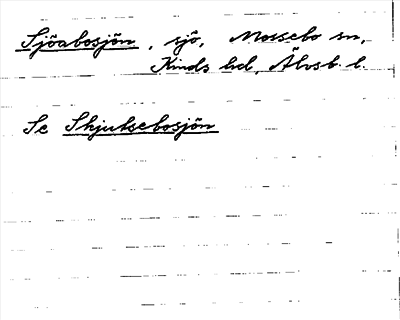 Sjöabosjön, sjö, Mossebo sn,
Kinds hd, Älvsb. l.
Se Skjuksebosjön